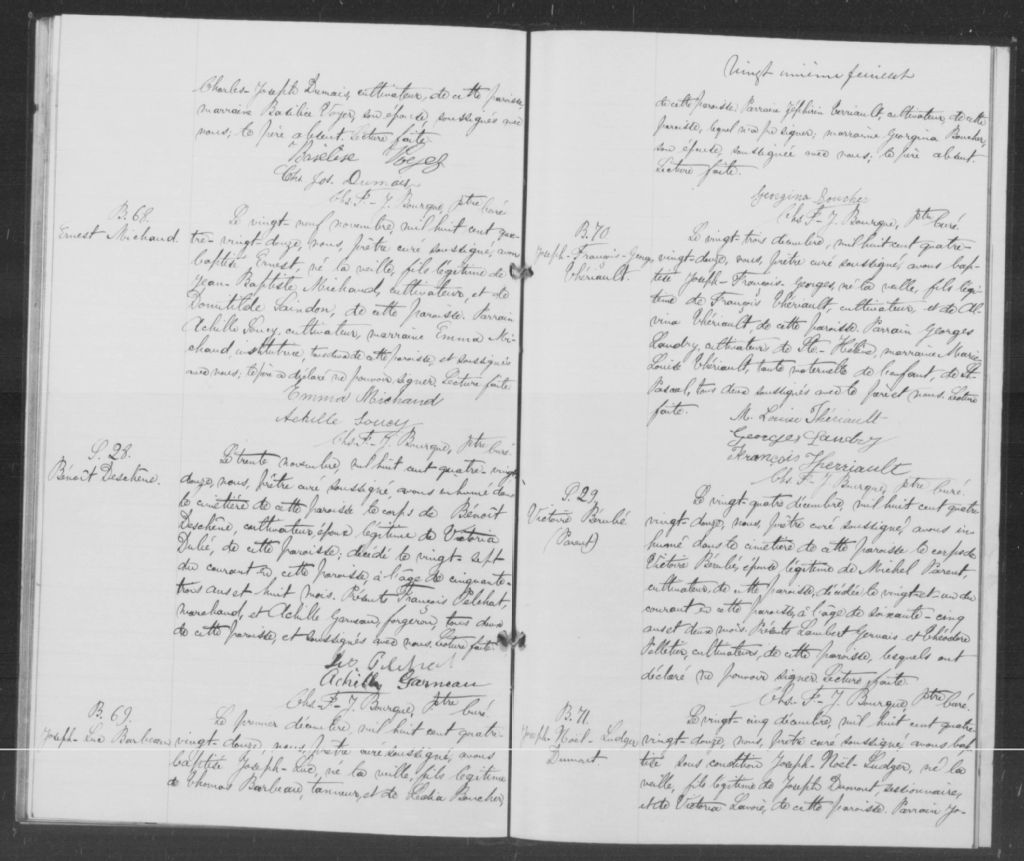 Charles-Joseph Dumais, cultivateur, de cette paroisse,
marraine Basilice Voyer, son épouse, soussignés avec
nous; le père absent. Lecture faite.
Basilise Voyer
Chs Jos. Dumais
Chs. F-J. Bourque, ptre curé
B. 68.
Ernest Michaud.
Le vingt-neuf novembre, mil huit cent qua-
tre-vingt-douze, nous, prêtre curé soussigné, avons
baptisé Ernest, né la veille, fils légitime de
Jean-Baptiste Michaud, cultivateur, et de
Domitilde Saindon, de cette paroisse. Parrain
Achille Soucy, cultivateur, marraine Emma Mi-
chaud, institutrice, tous deux de cette paroisse, et soussignés
avec nous; le père a déclaré ne pouvoir signer. Lecture faite
Emma Michaud
Achille Soucy
Chs. F-J. Bourque, ptre curé.
S. 28.
Bénoît Deschêne.
Le trente novembre, mil huit cent quatre-vingt
douze, nous, prêtre curé soussigné, avons inhumé dans
le cimetière de cette paroisse le corps de Bénoît
Deschêne, cultivateur, époux légitime de Victoria
Dubé, de cette paroisse; décédé le vingt-sept
du courant en cette paroisse, à l'âge de cinquante-
trois ans et huit mois. Présents François Pelchat,
marchand, et Achille Garneau, forgeron, tous deux
de cette paroisse, et soussignés avec nous. Lecture faite.
Pelchat
Achille Garneau
Chs. F-J. Bourque, ptre curé
B. 69.
Joseph-Luc Barbeau
Le premier décembre, mil huit cent quatre-
vingt-douze, nous, prêtre curé soussigné, avons
baptisé Joseph-Luc, né la veille, fils légitime
de Thomas Barbeau, tanneur, et de Lédia Boucher,
vingt unième feuillet
de cette paroisse. Parrain Zéphirin Terriault, cultivateur, de cette
paroisse, lequel n'a pu signer; marraine Georgina Boucher,
son épouse, soussignée avec nous; le père absent.
Lecture faite.
Georgina Boucher
Chs. F-J. Bourque, ptre curé.
B. 70
Joseph-François-Georges
Thériault.
Le vingt-trois décembre, mil huit cent quatre-
vingt-douze, nous, prêtre curé soussigné, avons bap-
tisé Joseph-François-Georges, né la veille, fils légi-
time de François Thériault, cultivateur, et de Al-
vina Thériault, de cette paroisse. Parrain Georges
Landry, cultivateur, de Ste-Hélène, marraine Marie-
Louise Thériault, tante maternelle de l'enfant, de St-
Pascal, tous deux soussignés avec le père et nous. Lecture
faite.
M. Louise Thériault
Georges Landry
François Therriault
Chs. F-J Bourque, ptre curé.
S. 29
Victoire Bérubé
(Parent)
Le vingt-quatre décembre, mil huit cent quatre
vingt-douze, nous, prêtre curé soussigné, avons in-
humé dans le cimetière de cette paroisse le corps de
Victoire Bérubé, épouse légitime de Michel Parent,
cultivateur, de cette paroisse, décédée le vingt-et-un du
courant en cette paroisse, à l'âge de soixante-cinq
ans et deux mois. Présents Lambert Gervais et Théodore
Pelletier, cultivateurs, de cette paroisse, lesquels ont
déclaré ne pouvoir signer. Lecture faite.
Chs. F-J. Bourque, ptre curé.
B. 71.
Joseph-Noël-Ludger
Dumont
Le vingt-cinq décembre, mil huit cent quatre
vingt-douze, nous, prêtre curé soussigné avons bap-
tisé sous condition Joseph-Noël-Ludger, né la
veille, fils légitime de Joseph Dumont, sessionnaire,
et de Victoria Lavoie, de cette paroisse. Parrain Jo-